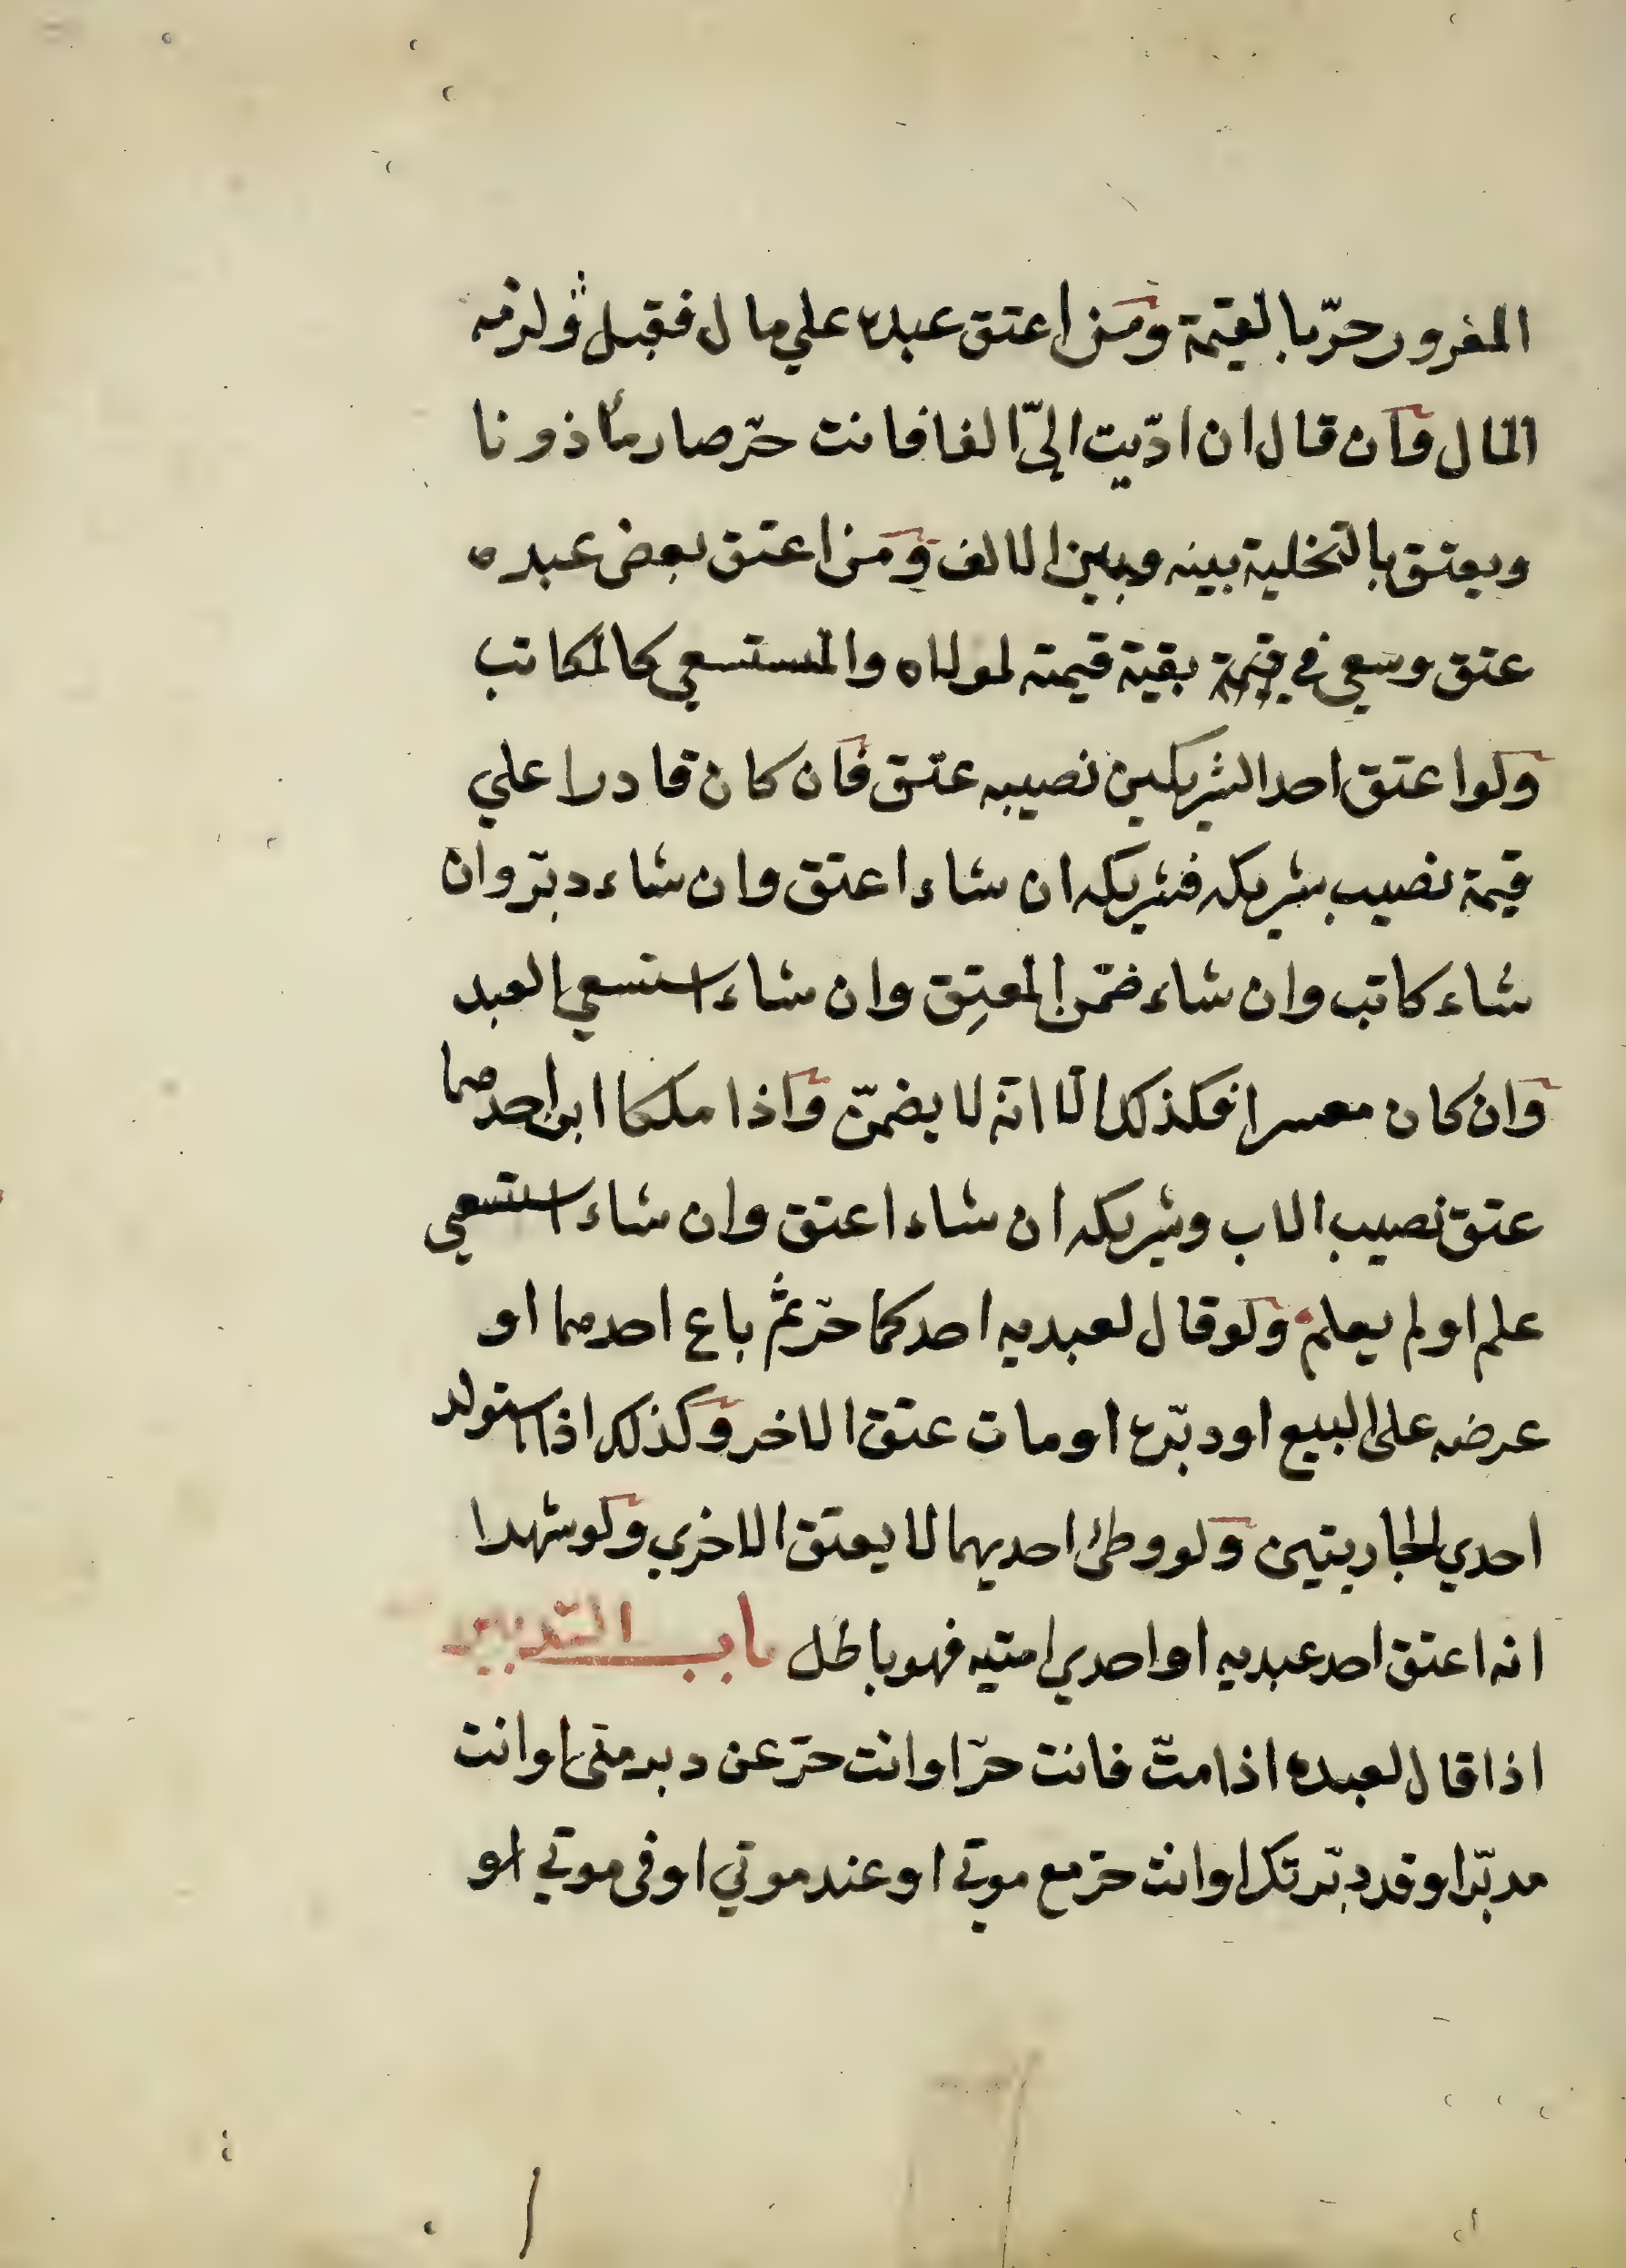 المغرور حرّ بالقيمة ومن اعتق عبده علي مال فقبل ولزمه
المال وان قال ان ادّيت اليّ الفا فانت حرّ صار مأذونا
ويعتق بالتخلية بينه وبين الالف ومن اعتق بعض عبده
عتق وسعي في بقية قيمته لمولاه والمستسعي كالمكاتب
ولو اعتق احد الشريكين نصيبه عتق فان كان قادرا علي
قيمة نصيب شريكه فشريكه ان شاء اعتق وان شاء دبّر وان
شاء كاتب وان شاء ضمّن المعتِق وان شاء استسعي العبد
وان كان معسرا فكذلك الّا انّه لا يضمّن واذا ملكا ابن احدهما
عتق نصيب الاب وشريكه ان شاء اعتق وان شاء استسعي
علم او لم يعلم ولو قال لعبديه احدكما حرّ ثمّ باع احدهما او
عرضه على البيع او دبّره او مات عتق الاخر وكذلك اذا استولد
احدي الجاريتين ولو وطئ احديهما لا يعتق الاخري ولو شهدا
انه اعتق احد عبديه او احدي امتيه فهو باطل باب التدبير
اذا قال لعبده اذا متّ فانت حرّ او انت حرّ عن دبر منى او انت
مدبّر او قد دبّرتك او انت حرّ مع موتي او عند موتي او في موتي او